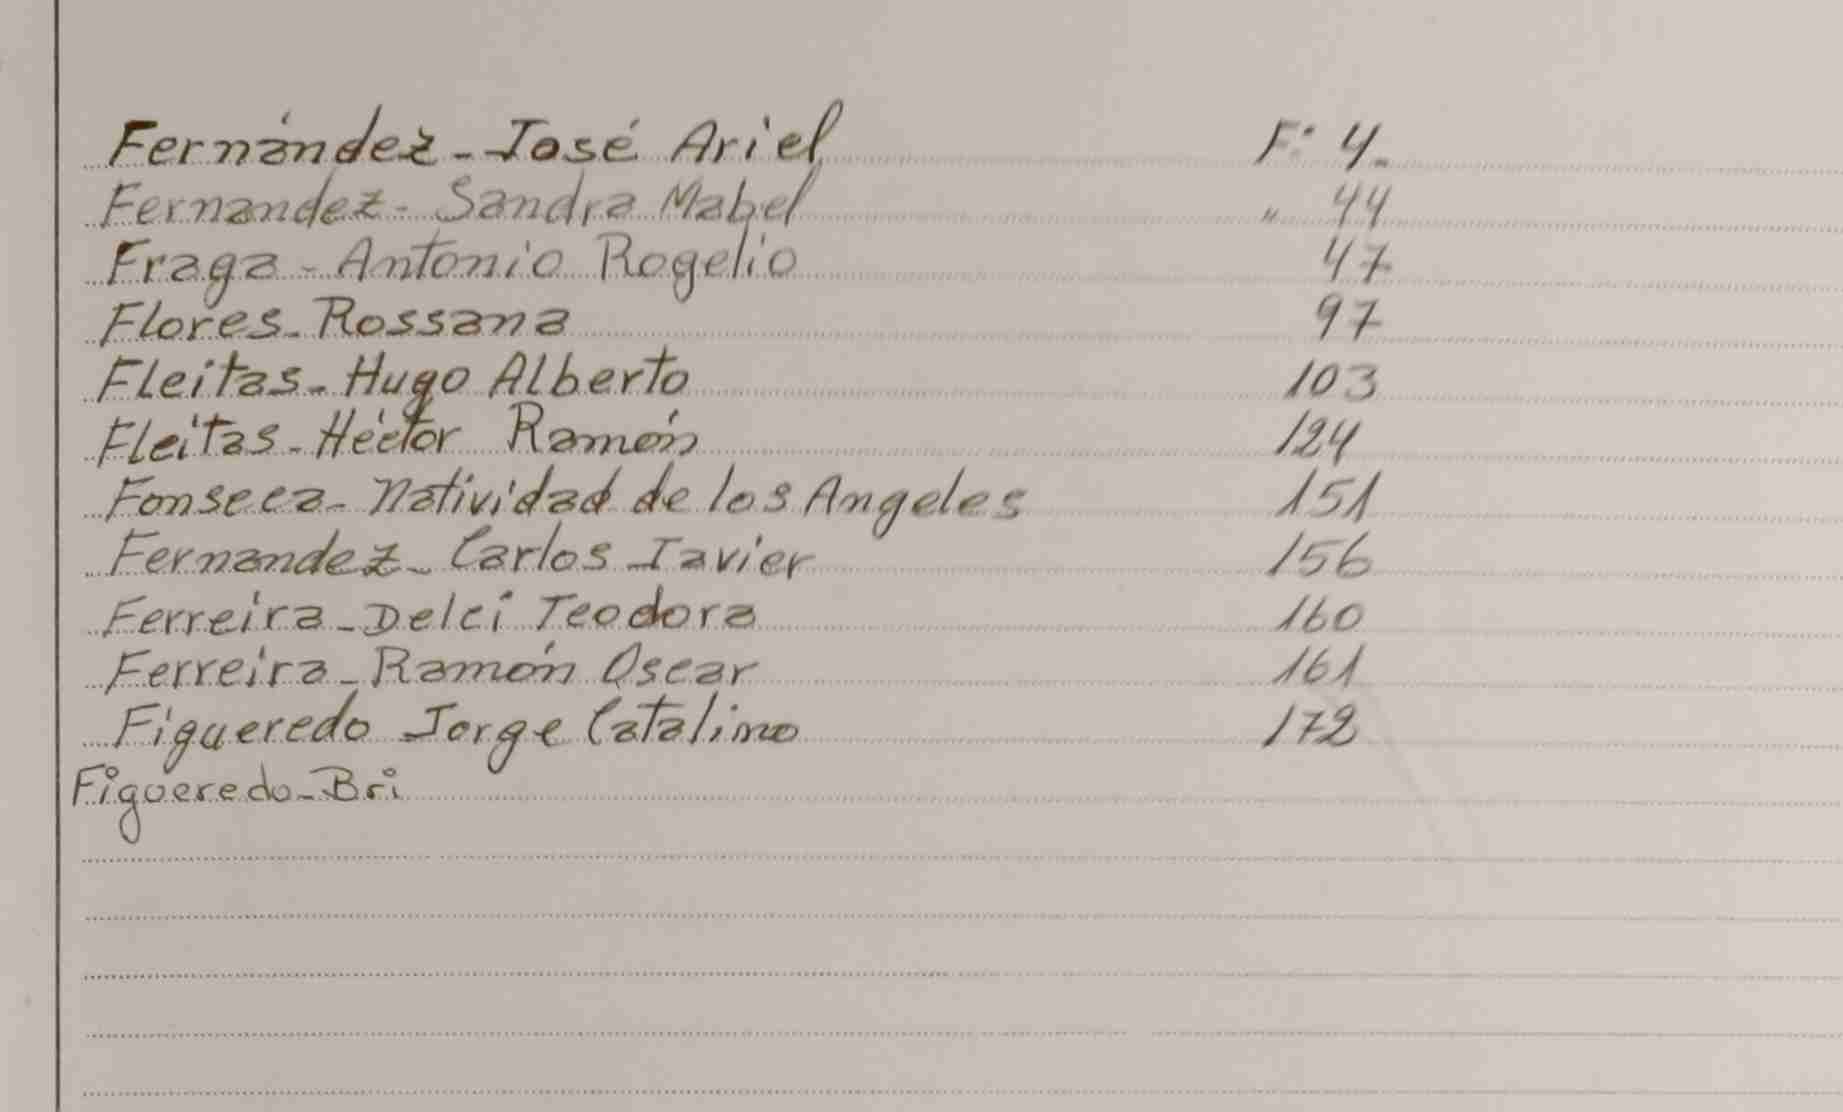 Fernández - José Ariel F: 4.
Fernandez - Sandra Mabel " 44
Fraga - Antonio Rogelio 47
Flores - Rossana 97
Fleitas - Hugo Alberto 103
Fleitas - Héctor Ramón 124
Fonseca - Natividad de los Angeles 151
Fernandez - Carlos Javier 156
Ferreira - Delci Teodora 160
Ferreira - Ramón Oscar 161
Figueredo Jorge Catalino 172
Figueredo - Bri